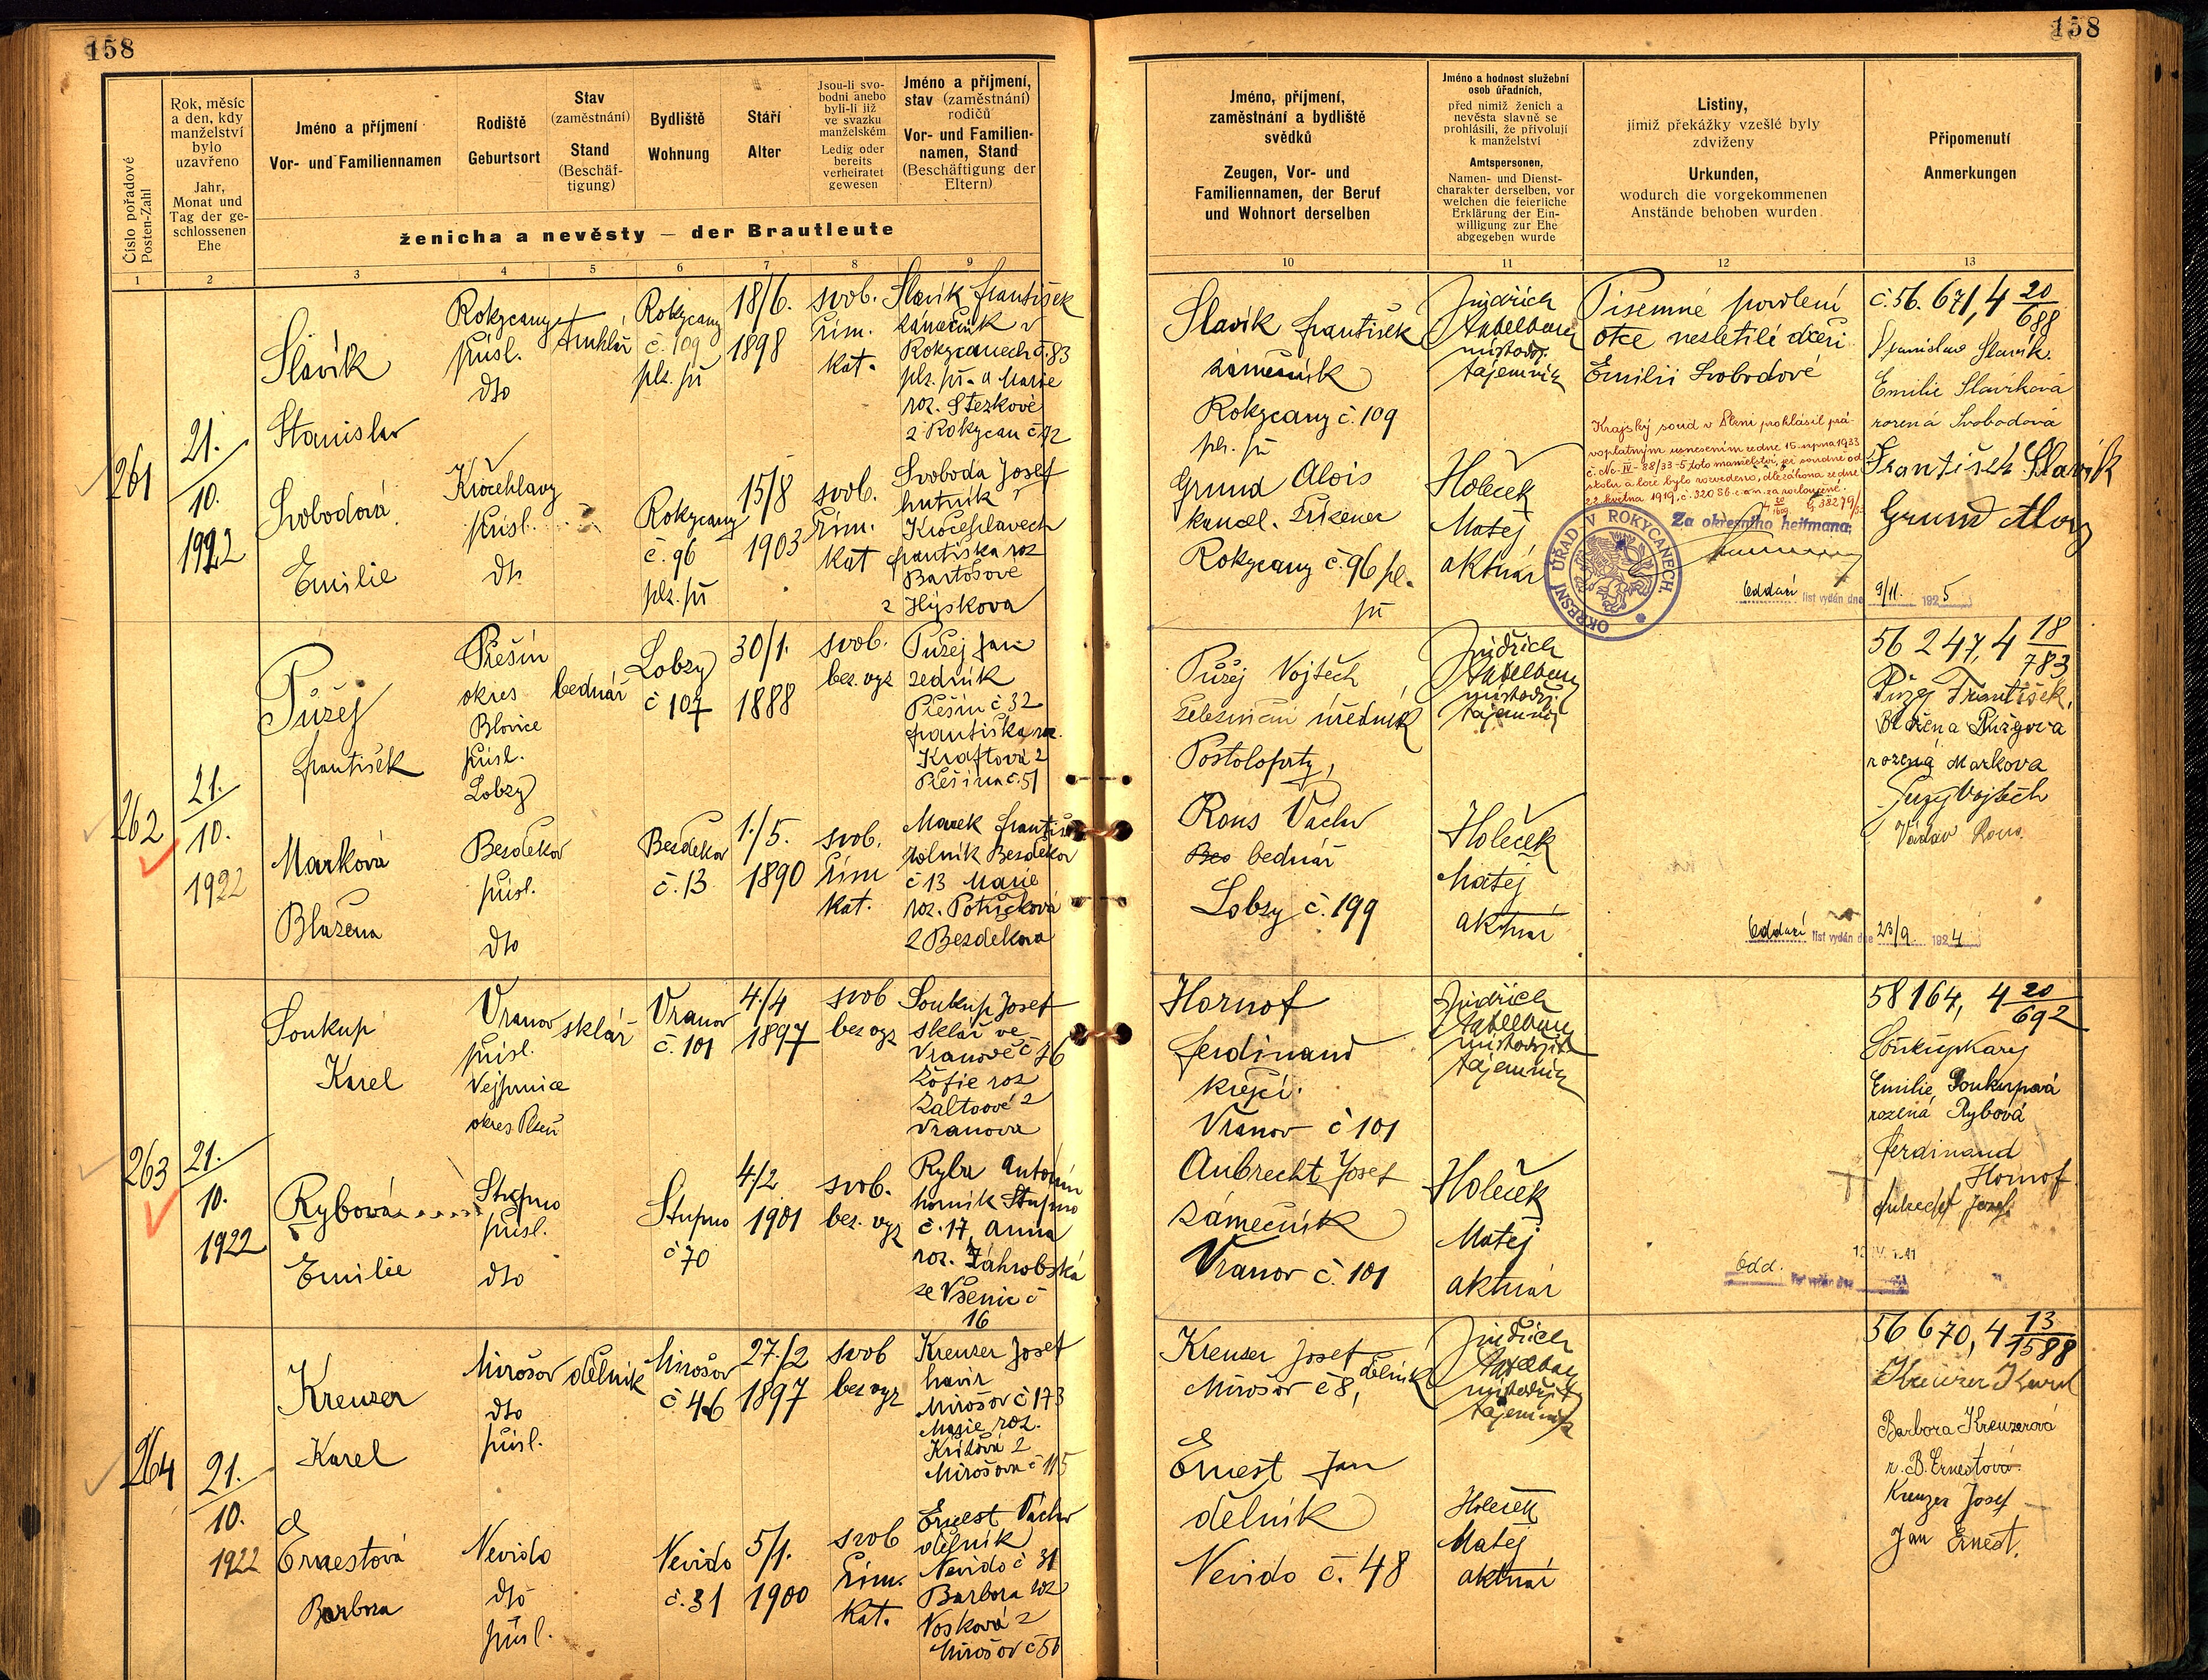 158
158
Číslo pořadové
Posten-Zahl
Rok, měsíc
a den, kdy
manželství
bylo
uzavřeno
Jahr,
Monat und
Tag der ge-
schlossenen
Ehe
Jméno a příjmení
Vor- und Familiennamen
Rodiště
Geburtsort
Stav
(zaměstnání)
Stand
(Beschäf-
tigung)
Bydliště
Wohnung
Stáří
Alter
Jsou-li svo-
bodni anebo
byli-li již
ve svazku
manželském
Ledig oder
bereits
verheiratet
gewesen
Jméno a příjmení,
stav (zaměstnání)
rodičů
Vor- und Familien-
namen, Stand
(Beschäftigung der
Eltern)
ženicha a nevěsty — der Brautleute
Jméno, příjmení,
zaměstnání a bydliště
svědků
Zeugen, Vor- und
Familiennamen, der Beruf
und Wohnort derselben
Jméno a hodnost služební
osob úřadních,
před nimiž ženich a
nevěsta slavně se
prohlásili, že přivolují
k manželství
Amtspersonen,
Namen- und Dienst-
charakter derselben, vor
welchen die feierliche
Erklärung der Ein-
willigung zur Ehe
abgegeben wurde
Listiny,
jimiž překážky vzešlé byly
zdviženy
Urkunden,
wodurch die vorgekommenen
Anstände behoben wurden
Připomenutí
Anmerkungen
1 2 3 4 5 6 7 8 9 10 11 12 13
261
21.
10.
1922
Slavík
Stanislav
Rokycany
přísl.
dto
truhlář
Rokycany
č. 109
plz. př
18/6.
1898
svob.
řím.
kat.
Slavík František
zámečník v
Rokycanech č. 83
plz. př. a Marie
roz. Stezkové
z Rokycan č. 42
Svobodová
Emilie
Kročehlavy
přísl.
dto
Rokycany
č. 96
plz. př
15/8
1903
svob.
řím.
kat
Svoboda Josef
hutník
Kročehlavech
Františka roz
Bartošové
z Hýskova
Slavík František
zámečník
Rokycany č. 109
plz. př
Grund Alois
kancel. zřízenec
Rokycany č. 96 pl.
př
Jindřich
místodrž.
tajemník
Holeček
Matěj
aktuár
Písemné povolení
otce nezletilé dceři
Emilii Svobodové
Krajský soud v Plzni prohlásil prá-
voplatným usnesením ze dne 15. srpna 1933
č. Nc IV- 88/33-5 toto manželství, jež soudně od
stolu a lože bylo rozvedeno, dle zákona ze dne
22. května 1919, č. 320 Sb. z. a n. za rozloučené.
Za okresního hejtmana:
OKRESNÍ ÚŘAD V ROKYCANECH.
č. 56. 671, 4 20/688
Stanislav Slavík.
Emilie Slavíková
rozená Svobodová
František Slavík
Grund Alois
Oddací list vydán dne 9/11. 1925
262
21.
10.
1922
Půžej
František
Přešín
okres
Blovice
přísl.
Lobzy
bednář
Lobzy
č 107
30/1.
1888
svob.
bez. vyz
Půžej Jan
zedník
Přešín č 32
Františka roz.
Kraftová z
Přešína č. 51
Marková
Blažena
Bezděkov
přísl.
dto
Bezděkov
č. 13
1./5.
1890
svob.
řím
kat.
Marek Františ
rolník Bezděkov
č 13 Marie
roz. Potůčková
z Bezděkova
Půžej Vojtěch
železniční úředník
Postoloprty,
Rous Václav
bednář
Lobzy č. 199
Jindřich
místodrž.
tajemník
Holeček
Matěj
aktuár
56 247, 4 18/783
Půžej František,
Blažena Půžejova
rozená Markova
Půžej Vojtěch
Václav Rous.
Oddací list vydán dne 23/9. 1924
263
21.
10.
1922
Soukup
Karel
Vranov
přísl.
Vejprnice
okres Plzeň
sklář
Vranov
č. 101
4./4
1897
svob
bez vyz
Soukup Josef
sklář ve
Vranově č 76
Žofie roz
z
Vranova
Rybová
Emilie
Stupno
přísl.
dto
Stupno
č 70
4./2
1901
svob.
bez. vyz
Ryba Antonín
horník Stupno
č. 17, Anna
roz. Záhrobská
ze Všenic č
16
Hornof
Ferdinand
krejčí.
Vranov č 101
Aubrecht Josef
zámečník
Vranov č. 101
Jindřich
místodržit
tajemník
Holeček
Matěj
aktuár
58 164, 4 20/692
Soukup Karel
Emilie Soukupová
rozená Rybová
Ferdinand
Hornof
Aubrecht Josef.
Odd. list vydán dne
264
21.
10.
1922
Kreuzer
Karel
Mirošov
dto
přísl.
dělník
Mirošov
č 46
27./2
1897
svob
bez vyz
Kreuzer Josef
havíř
Mirošov č 173
Marie roz.
z
Mirošova č 115
Ernestová
Barbora
Nevido
dto
přísl.
Nevido
č. 31
5/1.
1900
svob
řím.
kat.
Ernest Václav
dělník
Nevido č 31
Barbora roz
Vosková z
Mirošov č 56
Kreuzer Josef
dělník
Mirošov č 8,
Ernest Jan
dělník
Nevido č. 48
Jindřich
místodržit
tajemník
Holeček
Matěj
aktuár
56 670, 4 13/1588
Kreuzer Karel
Barbora Kreuzerová
r. B. Ernestová.
Kreuzer Josef
Jan Ernest.